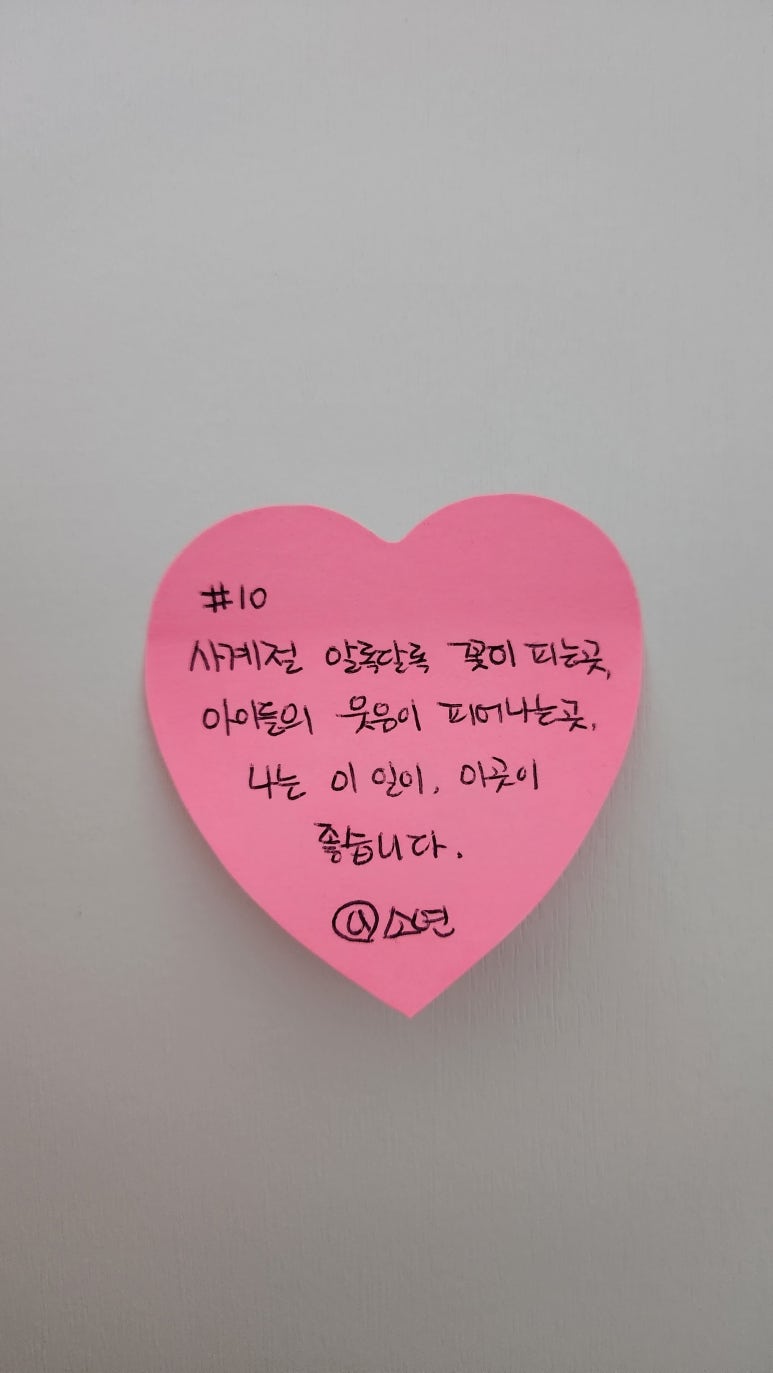 #10
사계절 알록달록 꽃이 피는곳,
아이들의 웃음이 피어나는곳,
나는 이 일이, 이곳이
좋습니다.
소연